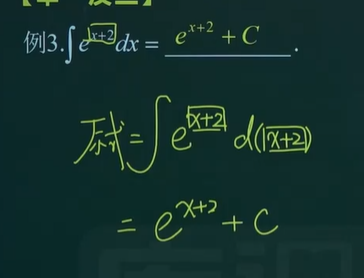 例3.∫e^{x+2}dx = e^{x+2} + C.
原式=∫e^{x+2} d(x+2)
= e^{x+2} + C